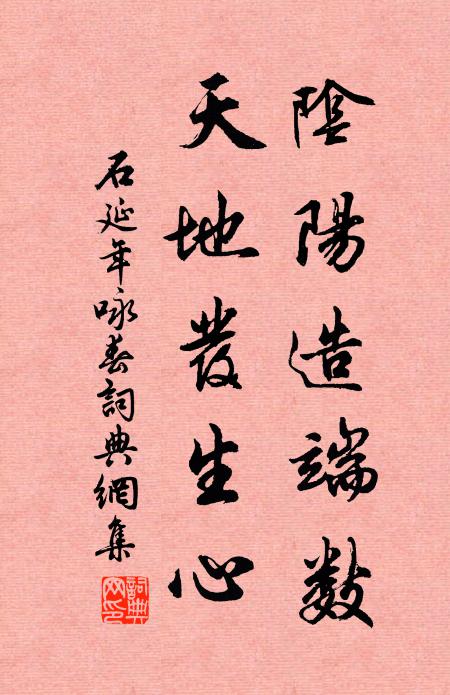 陰陽造端數
天地發生心
石延年咏春詞典網集
詞典網印